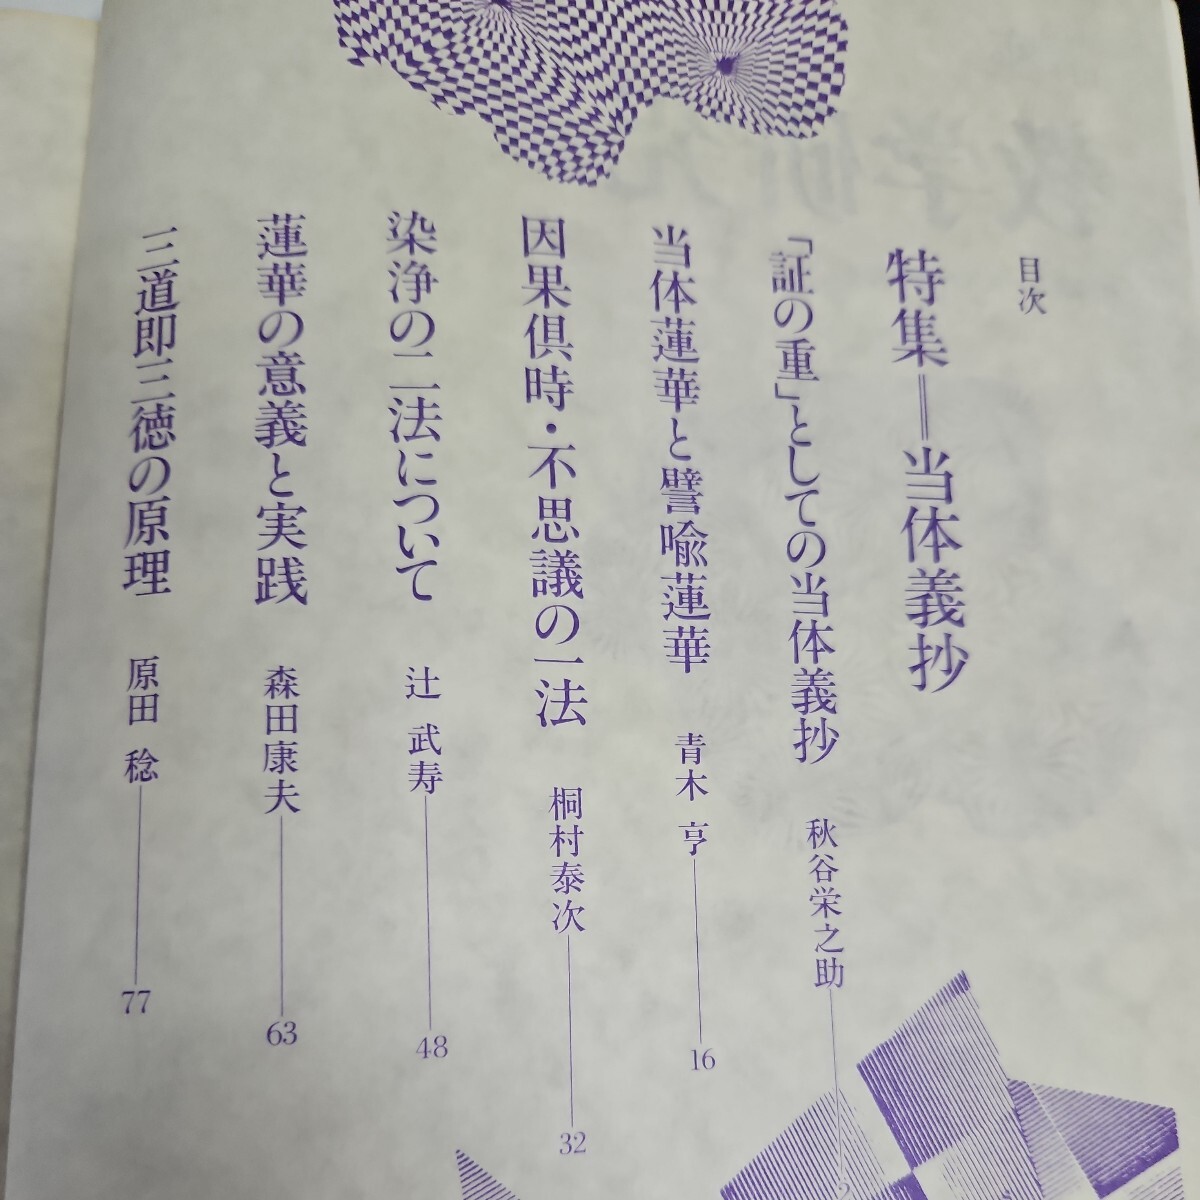 目次
特集＝当体義抄
「証の重」としての当体義抄 秋谷栄之助 2
当体蓮華と譬喩蓮華 青木 亨 16
因果倶時・不思議の一法 桐村泰次 32
染浄の二法について 辻 武寿 48
蓮華の意義と実践 森田康夫 63
三道即三徳の原理 原田 稔 77